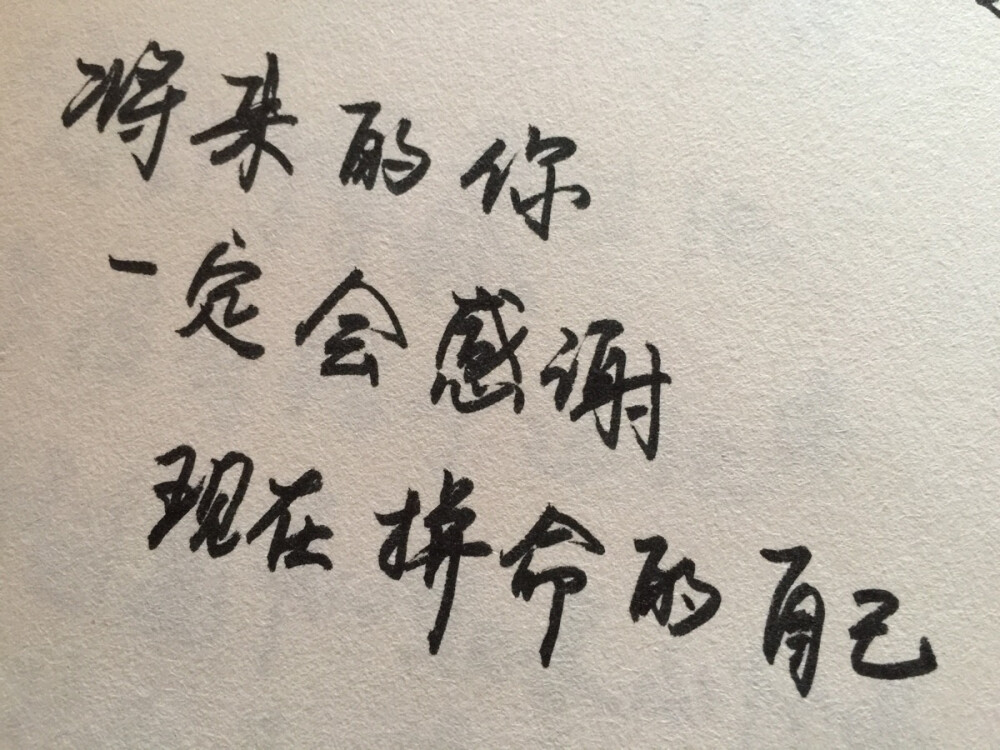 将来的你
一定会感谢
现在拼命的自己